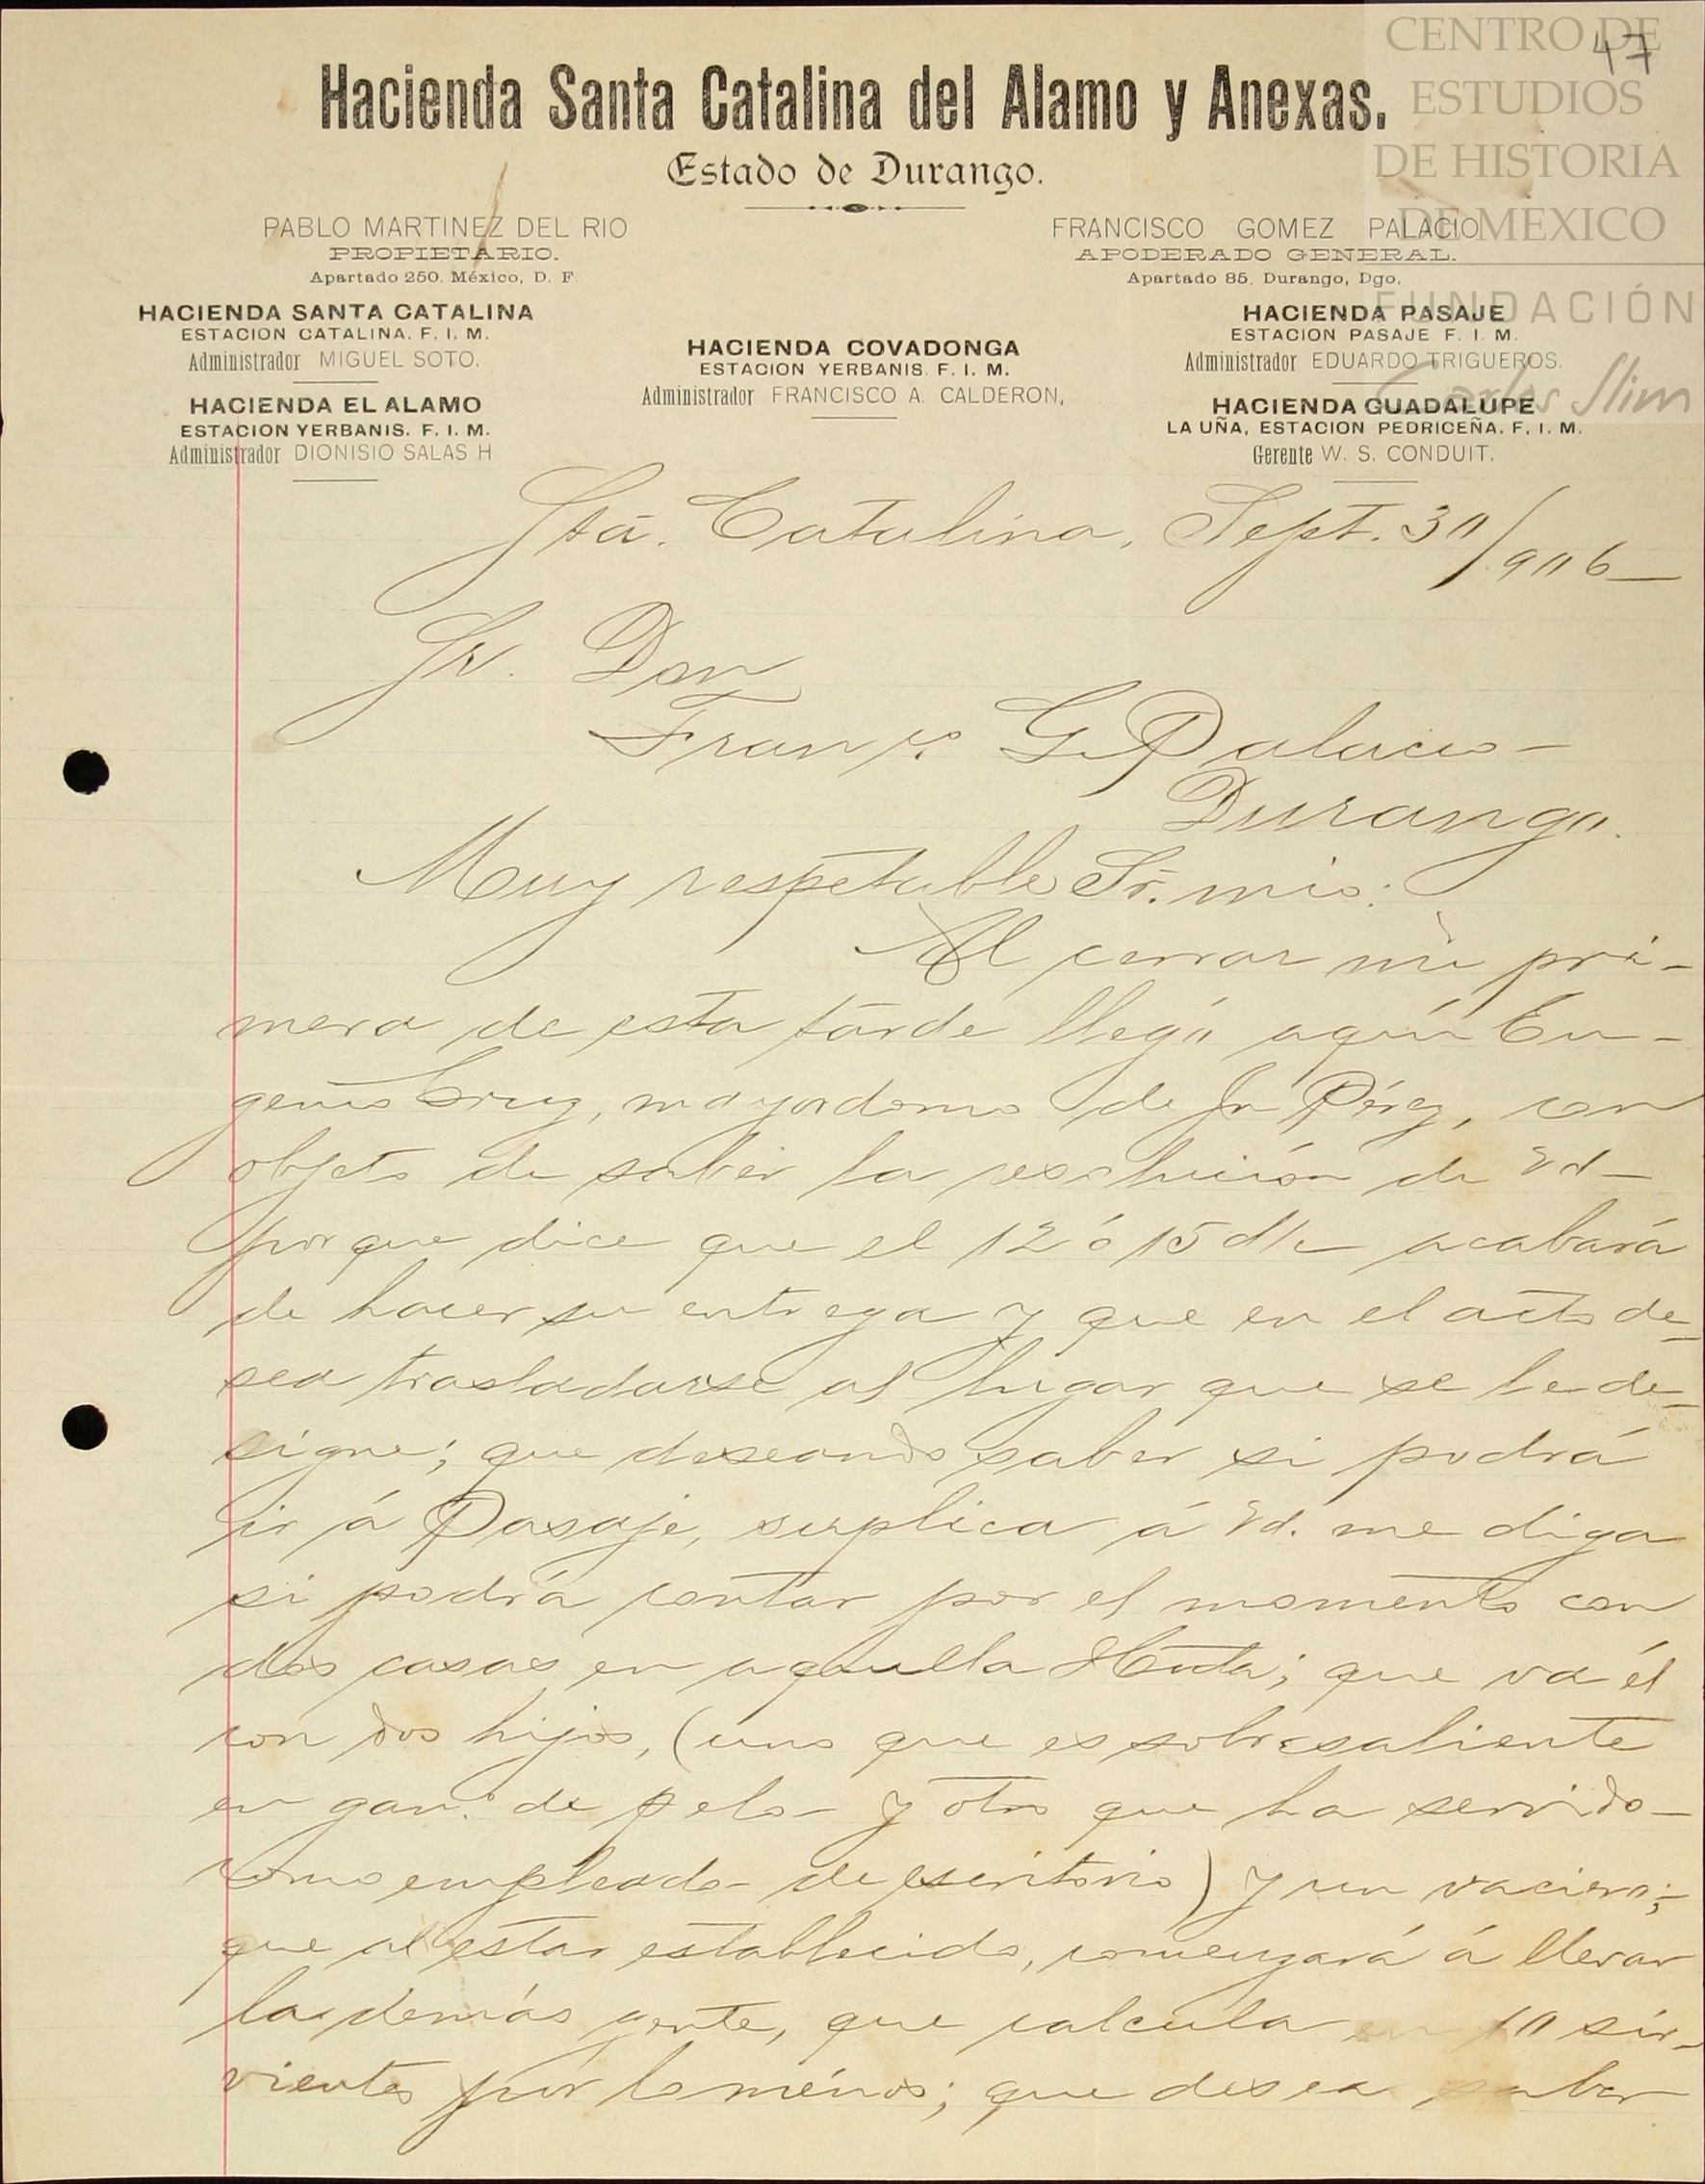 47
CENTRO DE
ESTUDIOS
DE HISTORIA
DE MEXICO
FUNDACIÓN
Carlos Slim
Hacienda Santa Catalina del Alamo y Anexas.
Estado de Durango.
PABLO MARTINEZ DEL RIO
PROPIETARIO.
Apartado 250. México, D. F.
FRANCISCO GOMEZ PALACIO
APODERADO GENERAL.
Apartado 85, Durango, Dgo.
HACIENDA SANTA CATALINA
ESTACION CATALINA. F. I. M.
Administrador MIGUEL SOTO.
HACIENDA EL ALAMO
ESTACION YERBANIS. F. I. M.
Administrador DIONISIO SALAS H
HACIENDA COVADONGA
ESTACION YERBANIS. F. I. M.
Administrador FRANCISCO A. CALDERON,
HACIENDA PASAJE
ESTACION PASAJE F. I. M.
Administrador EDUARDO TRIGUEROS.
HACIENDA GUADALUPE
LA UÑA, ESTACION PEDRICEÑA. F. I. M.
Gerente W. S. CONDUIT.
Sta. Catalina, Sept. 30/906
Sr. Don
Franco. G. Palacio
Durango.
Muy respetable Sr. mio:
Al cerrar mi pri-
mera de esta tarde llegó aquí Eu-
genio Cruz, mayordomo de Jn Pérez, con
objeto de saber la resolución de Vd
porque dice que el 12 ó 15 d/e acabará
de hacer su entrega y que en el acto de-
sea trasladarse al lugar que se le de-
signe; que deseando saber si podrá
ir á Pasaje, suplica á Vd. me diga
si podrá contar por el momento con
dos casas en aquella Hcda; que va él
con dos hijos, (uno que es sobresaliente
en gan.o de pelo y otro que ha servido
como empleado de escritorio) y un vaciero;
que al estar establecido, comenzará á llevar
la demás gente, que calcula en 10 sir-
vientes por lo ménos; que desea saber